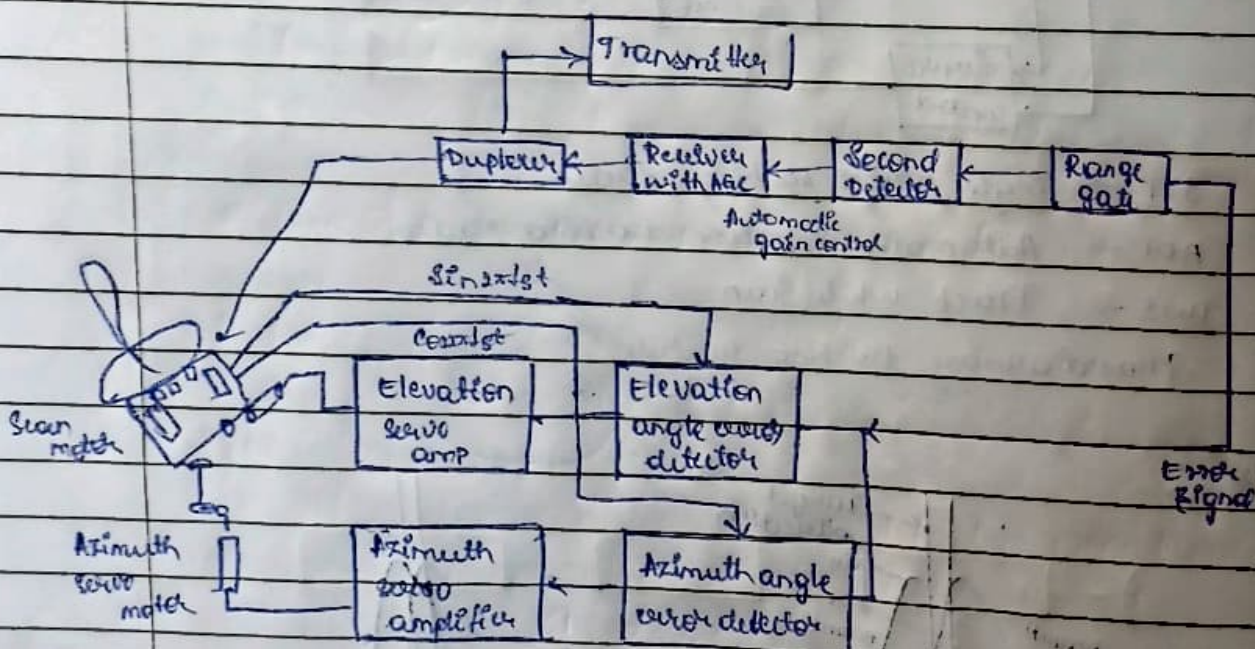 Transmitter
Duplexer
Receiver
with AGC
Second
Detector
Range
gate
Automatic
gain control
Elevation
servo
amp
Elevation
angle error
detector
Scan
motor
Error
Signal
Azimuth
servo
motor
Azimuth
servo
amplifier
Azimuth angle
error detector